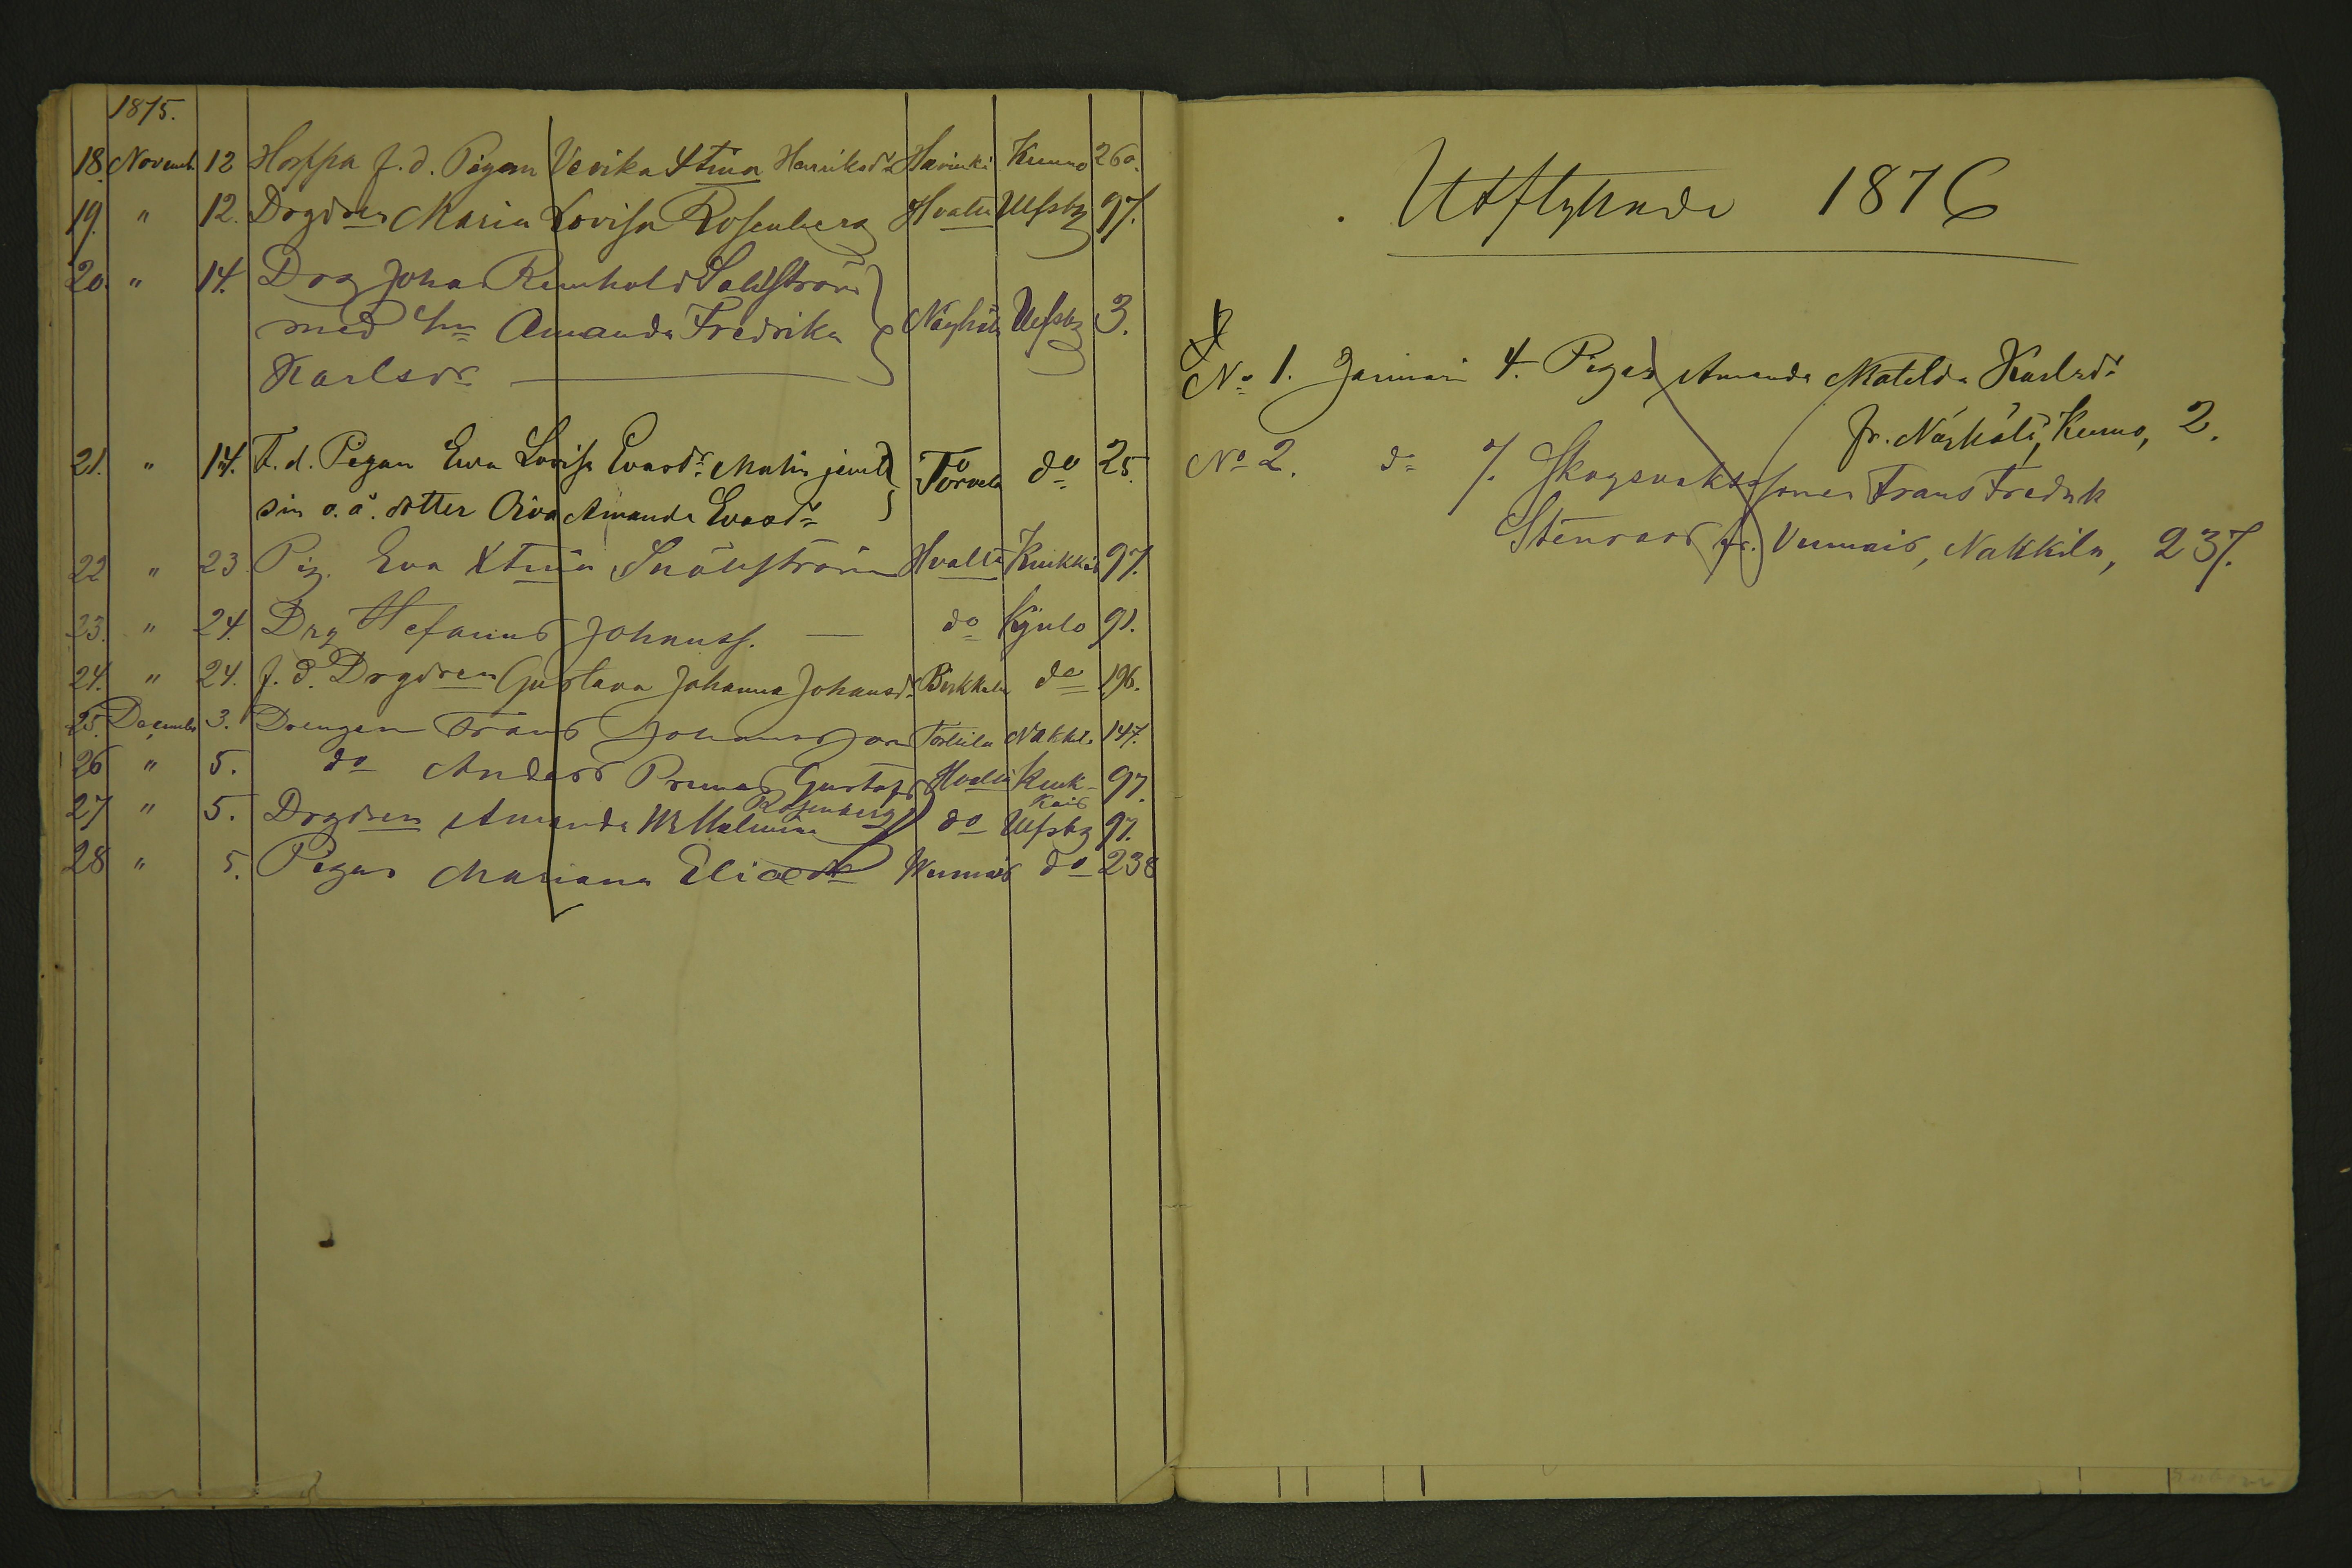 1875.
18. Novemb. 12 Hoppa f. d. Pigan Verika Stina Henriksdr Havinki Kumo 260.
19. " 12. Drgdren Maria Lovisa Rosenberg Hvalto Ulfsby 97.
20. " 14. Drg Johan Reinhold Sahlström
med h. Amanda Fredrika Näyhälä Ulfsby 3.
Karlsdr
21. " 14. F. d. Pigan Ewa Lovisa Evasdr Malin jemte Torvela do 25.
sin o. ä. dotter Amanda Evasdr
22 " 23 Pig. Eva Stina Hvalto Kiukkais 97.
23. " 24. Drg Stefanus Johanss. — do Kjulo 91.
24. " 24. f. d. Drgdren Gustava Johanna Johansdr Pirkkala do 196.
25. December 3. Drengen Frans Johansson Torttila Nakkila 147.
26 " 5. do Anders Primus Gustafs Hvalto Kiuk- 97.
Rosenberg kais
27 " 5. Drgdren Amanda Wilhelmina do Ulfsby 97.
28 " 5. Pigan Mariana Eliaedr Wiumais do 238
Utflyttande 1876
No 1. Januari 4. Pigan Amanda Matilda Karlsdr
fr. Näyhälä, Kumo, 2.
No 2. do 7. Skogsvaktssonen Frans Fredrik
Stenroos fr. Viumais, Nakkila, 237.